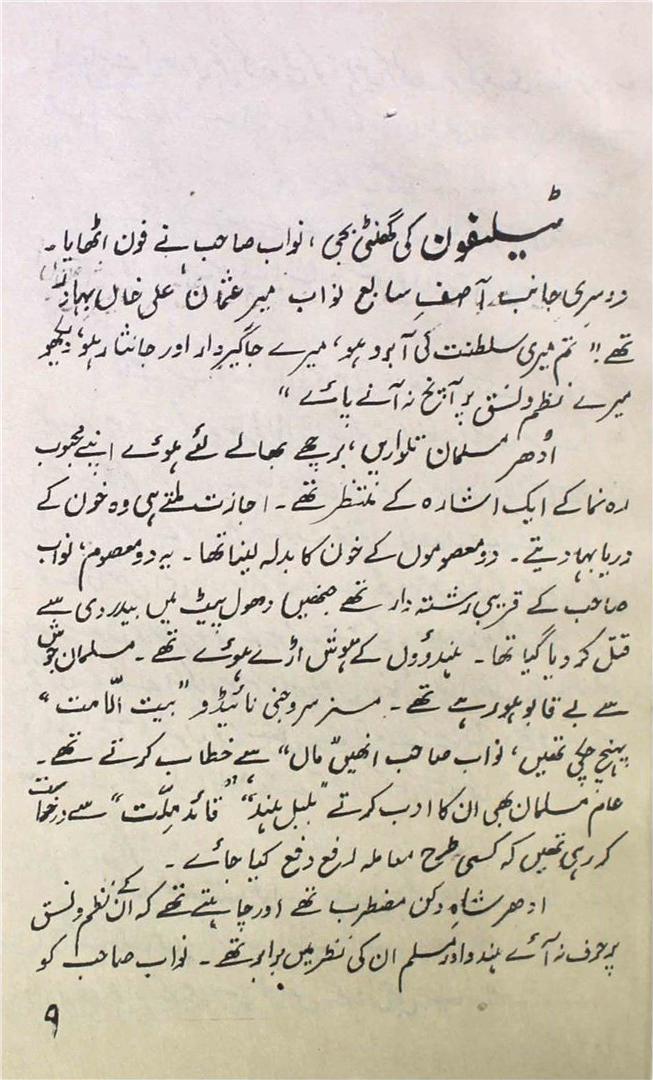 ٹیلیفون کی گھنٹی بجی، نواب صاحب نے فون اٹھایا۔
دوسری جانب آصفِ سابع نواب میر عثمان علی خاں بہادر
تھے "تم میری سلطنت کی آبرو ہو، میرے جاگیردار اور جانثار ہو، دیکھو
میرے نظم و نسق پر آنچ نہ آنے پائے"
اُدھر مسلمان تلواریں، برچھے بھالے لئے ہوئے اپنے محبوب
رہ نما کے ایک اشارہ کے منتظر تھے۔ اجازت ملتے ہی وہ خون کے
دریا بہا دیتے۔ دو معصوموں کے خون کا بدلہ لینا تھا۔ یہ دو معصوم، نواب
صاحب کے قریبی رشتہ دار تھے جنھیں دھول پیٹ میں بیدردی سے
قتل کر دیا گیا تھا۔ ہندوؤں کے ہوش اڑے ہوئے تھے۔ مسلمان جوش
سے بے قابو ہو رہے تھے۔ مسز سروجنی نائیڈو "بیت الامت"
پہنچ چکی تھیں، نواب صاحب انھیں "ماں" سے خطاب کرتے تھے۔
عام مسلمان بھی ان کا ادب کرتے "بلبل ہند"، "قائد ملّت" سے درخواست
کر رہی تھیں کہ کسی طرح معاملہ رفع دفع کیا جائے۔
ادھر شاہِ دکن مضطرب تھے اور چاہتے تھے کہ ان کے نظم و نسق
پر حرف نہ آئے ہندو اور مسلم ان کی نظر میں برابر تھے۔ نواب صاحب کو
۹